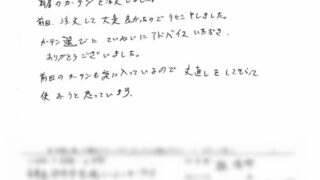 のカーテンを注文しました。
前回、注文して大変良かったのでリピートしました。
カーテン選びにていねいにアドバイスいただき、
ありがとうございました。
前回のカーテンも気に入っているので丈直しをしてもらって
使おうと思っています。